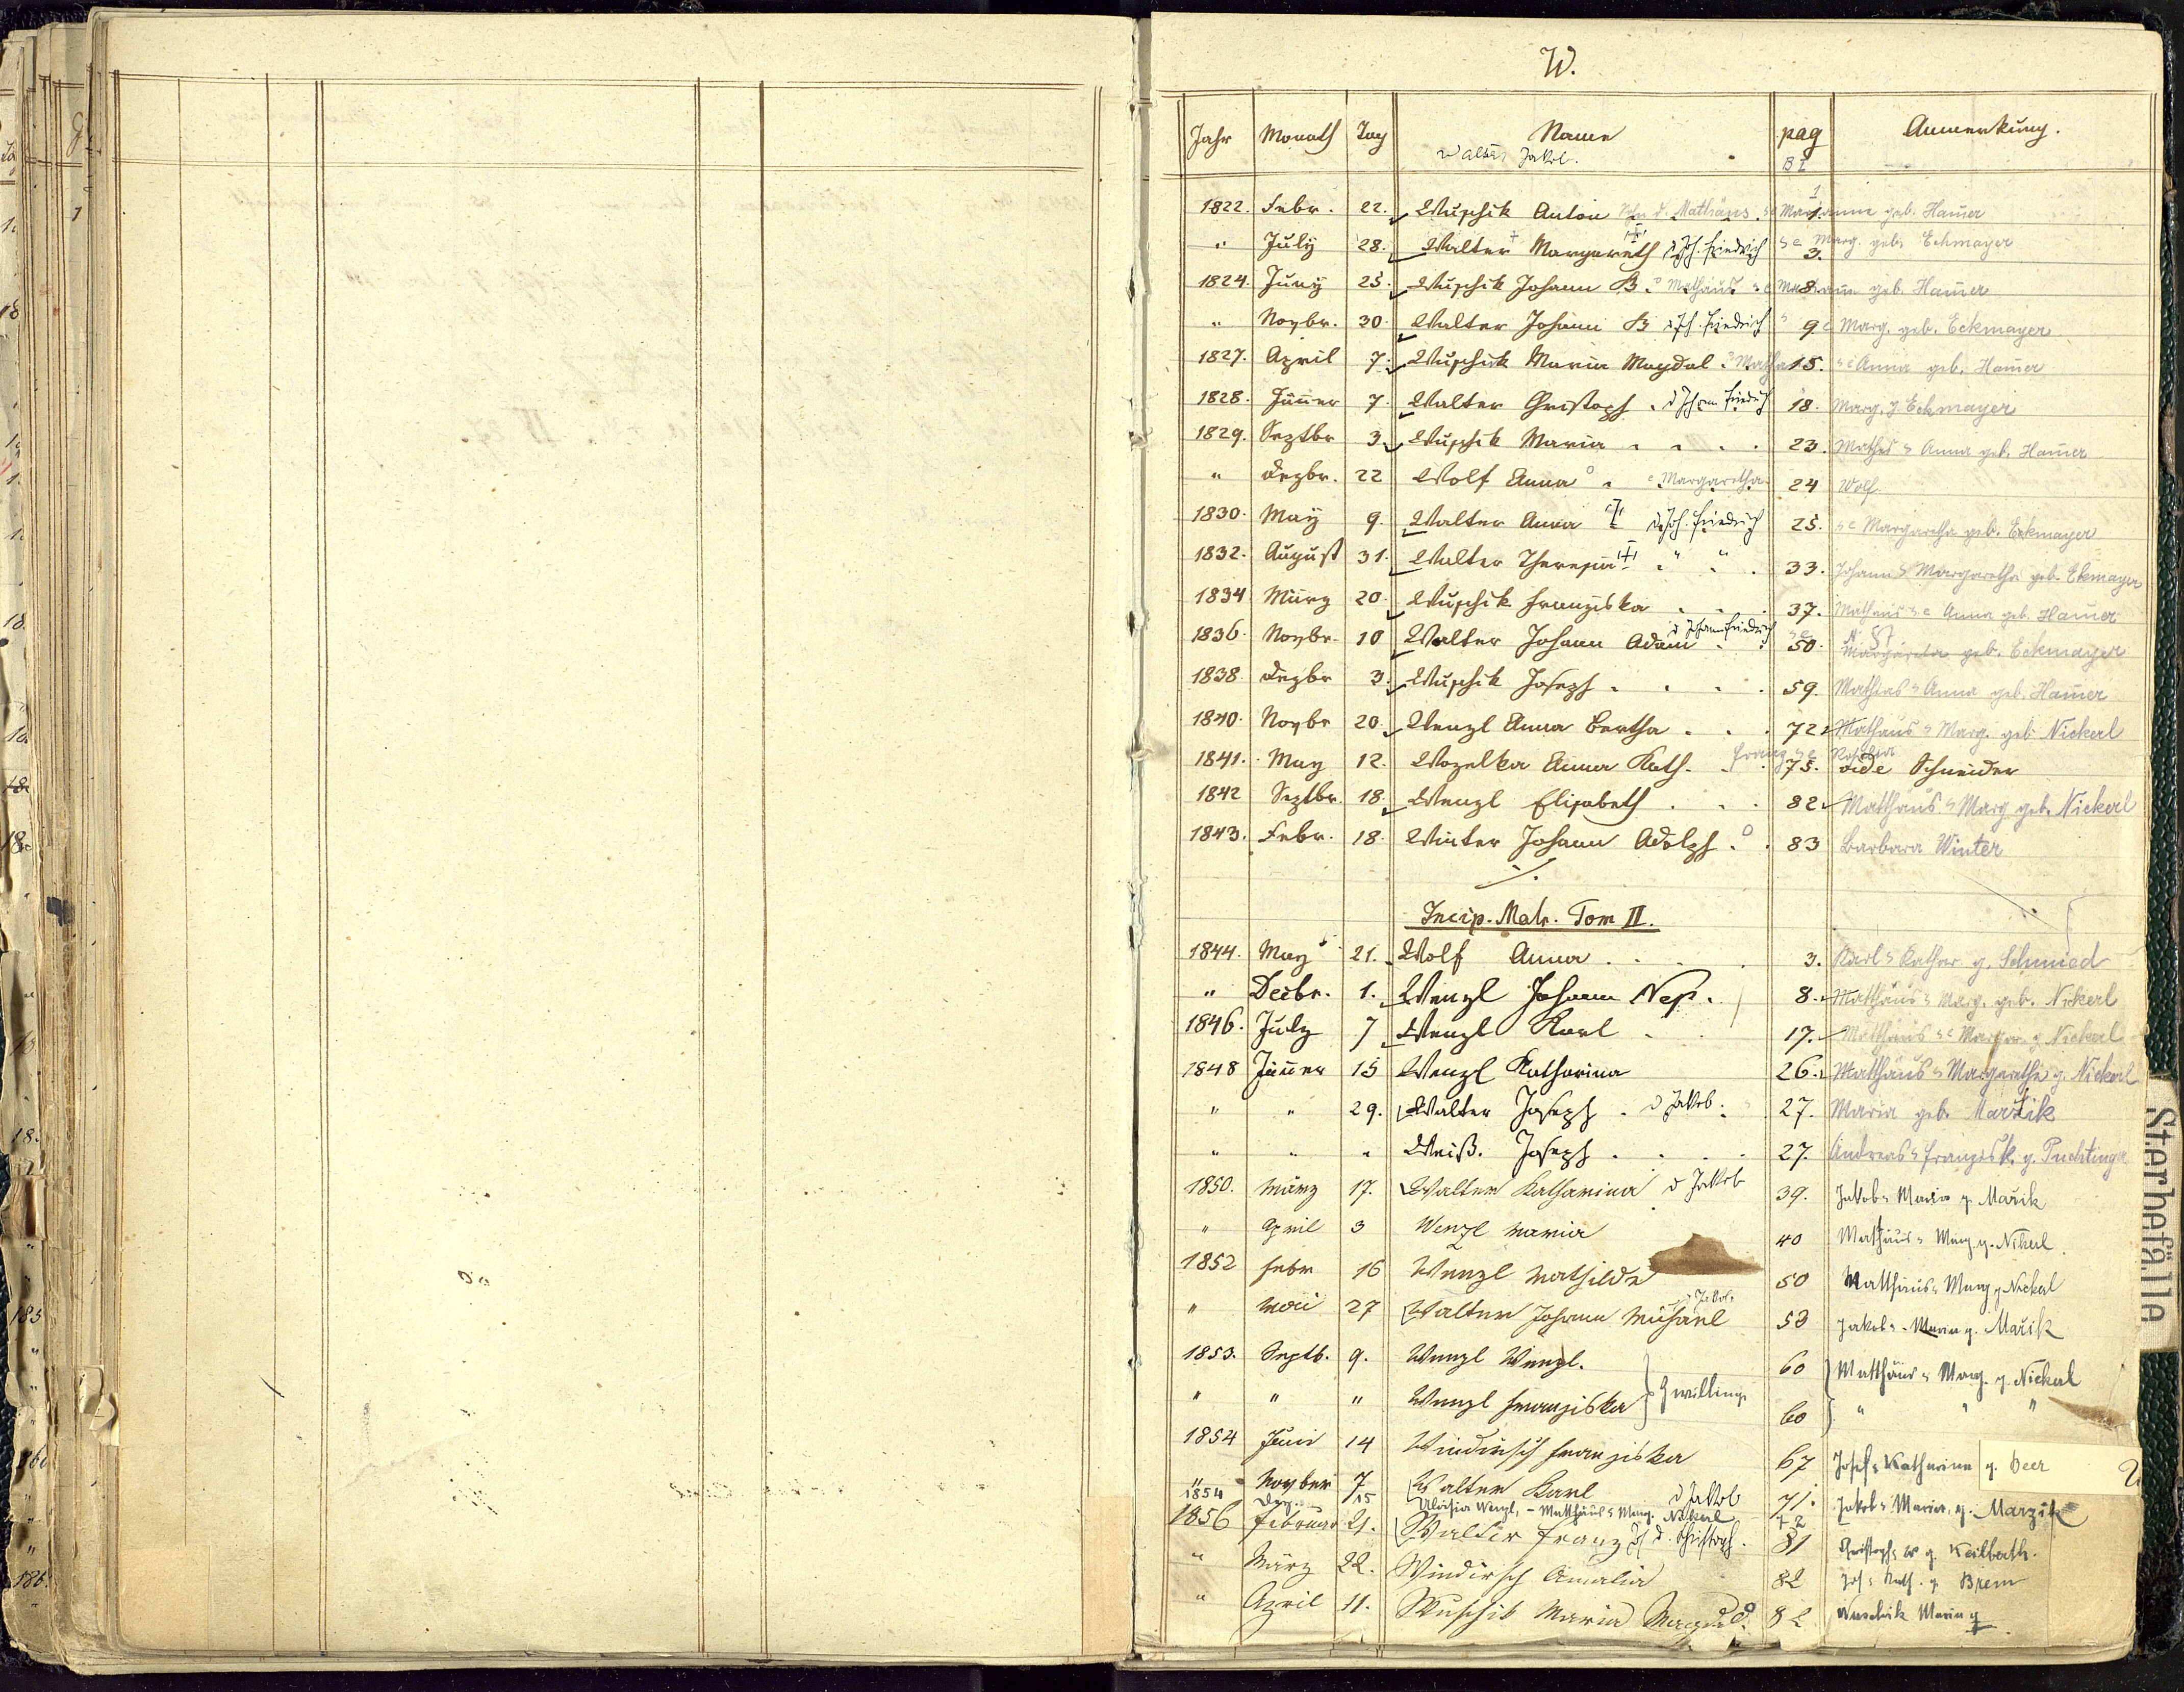 W.
Jahr Monath Tag Name pag Anmerkung.
Walter Jakob. B I
1822. Febr. 22. Wuschik Anton Sohn d. Mathäus 1. Marianna geb. Ham̄er
" July 28. Walter Margareth d Joh. Friedrich 3. Marg. geb. Eckmayer
1824. Juny 25. Wuschik Johann B. Mathäus 8. Marianna geb. Ham̄er
" Novbr. 30. Walter Johann B d Joh. Friedrich 9 Marg. geb. Eckmayer
1827. April 7. Wuschik Maria Magdal. 15. Anna geb. Ham̄er
1828. Jäner 7. Walter Christoph d Johann Friedrich 18. Marg. g. Eckmayer
1829. Septbr 3. Wuschik Maria 23. Anna geb. Ham̄er
" Dezbr. 22 Wolf Anna Margaretha 24 Wolf
1830. May 9. Walter Anna d. Joh. Friedrich 25. Margaretha geb. Eckmayer
1832. August 31. Walter Theresia " " 33. Johann Margaretha geb. Ekmayer
1834 März 20. Wuschik Franziska 37. Anna geb. Ham̄er
1836. Novbr. 10 Walter Johann Adam d Johann Friedrich 50. Margareta geb. Eckmayer
1838 Dezbr 3. Wuschik Joseph 59. Mathias Anna geb. Ham̄er
1840. Novbr 20. Wenzl Anna Bertha 72 Mathäus Marg. geb. Nickerl
1841. May 12. Wozelka Anna Kath. Franz 75. vide Schneider
1842 Septbr. 18. Wenzl Elisabeth 82. Matthäus Marg geb. Nickerl
1843. Febr. 18. Winter Johann Adolph 83 Barbara Winter
Incip. Matr. Tom II.
1844. May 21. Wolf Anna 3. Karl Kathar. g. Schmied
" Decbr. 1. Wenzl Johann Nep. 8. Matthäus Marg. geb. Nickerl
1846. July 7 Wenzl Karl 17. Matthäus Margar. g. Nickerl
1848 Jäner 15 Wenzl Katharina 26. Matthäus Margaretha g. Nickerl
" " 29. Walter Joseph d Jakob. 27. Maria geb. Maržik
" " " Weiß. Joseph 27. Andreas Franzisk. g. Puchtinga
1850. März 17. Walter Katharina d Jakob 39. Jakob Maria g. Mařik
" April 3 Wenzl Maria 40 Mathäus Marg. g. Nikerl
1852 Febr 16 Wenzl Mathilde 50 Matthäus Marg g Nickerl
" Mai 27 Walter Johann Michael Jakob 53 Jakob Maria g. Mařik
1853. Septb. 9. Wenzl Wenzl. 60 Matthäus Marg. g. Nickerl
" " " Wenzl Franziska Zwillinge 60 " " "
1854 Juni 14 Windirsch Franziska 67 Josef Katharina g. Beer
" Novber 7 Walter Karl d Jakob 71. Jakob Maria, g. Marzik
1854 Dez. 15 Aloisia Wenzl, - Matthäus Marg. Nickerl 72
1856 Februar 21. Walter Franz d. Christoph. 81 Christoph g. Keilbath.
" März 22. Windirsch Amalia 82 Jos. Kath. g. Brem
" April 11. Wuschik Maria Magdal. 82 Wuschik Maria
Sterbefälle